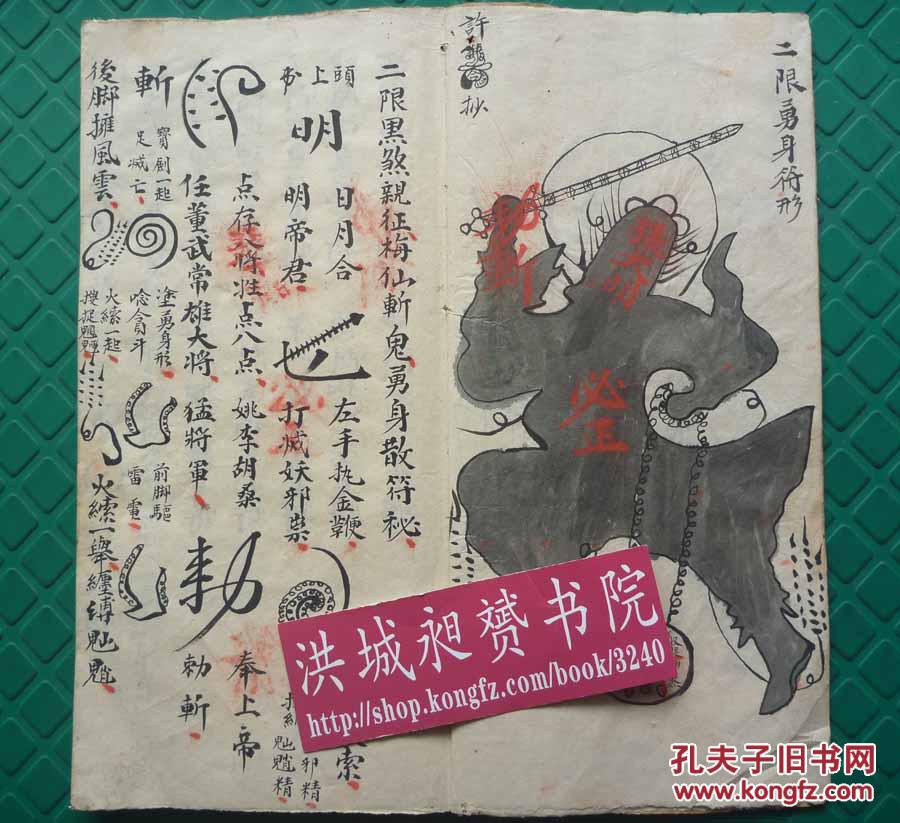 二限勇身符形
勅斬
必正
許
抄
二限黑煞親征梅仙斬鬼勇身散符祕
頭上
明
日月合
明帝君
左手执金鞭
打滅妖邪祟
索
邪精
魑精
点存八将姓点八点
姚李胡桑
奉上帝
任董武常雄大将
猛将軍
勅
勅斬
斬
寶劍一起
足滅亡
塗勇身形
唸貪斗
前脚驅
雷電
後脚擁風雲
火繚一起
搜捉魍魎
火繚一舉纏縛魈魈
洪城昶赟书院
http://shop.kongfz.com/book/3240
孔夫子旧书网
www.kongfz.com